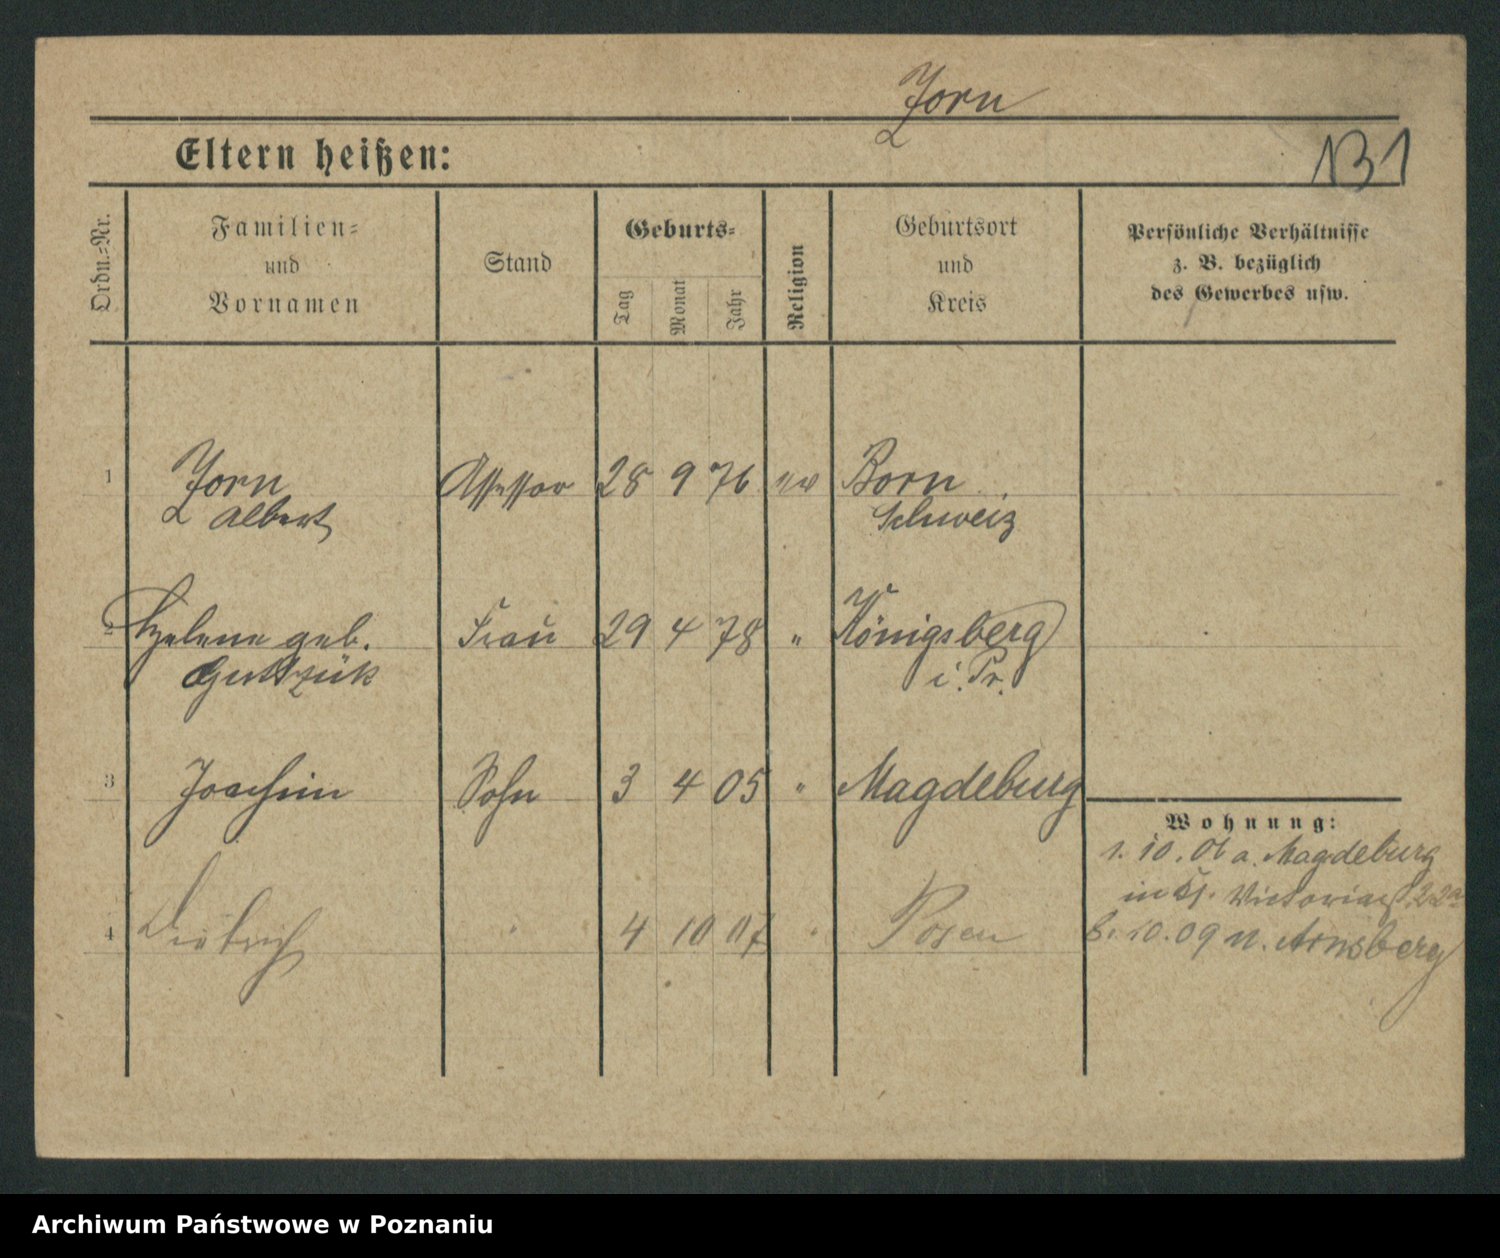 Zorn
131
Eltern heißen:
Ordn.-Nr.
Familien- und Vornamen
Stand
Geburts-
Tag
Monat
Jahr
Religion
Geburtsort und Kreis
Persönliche Verhältnisse
z. B. bezüglich
des Gewerbes usw.
1 Zorn Assessor 28 9 76 ev Born
Albert Schweiz
2 Helene geb. Frau 29 4 78 " Königsberg
i. Pr.
3 Joachim Sohn 3 4 05 " Magdeburg
Wohnung:
1. 10. 06 a. Magdeburg
in Victoriast 22a
4 Dietrich " 4 10 07 " Posen
8. 10. 09 n. Arnsberg
Archiwum Państwowe w Poznaniu